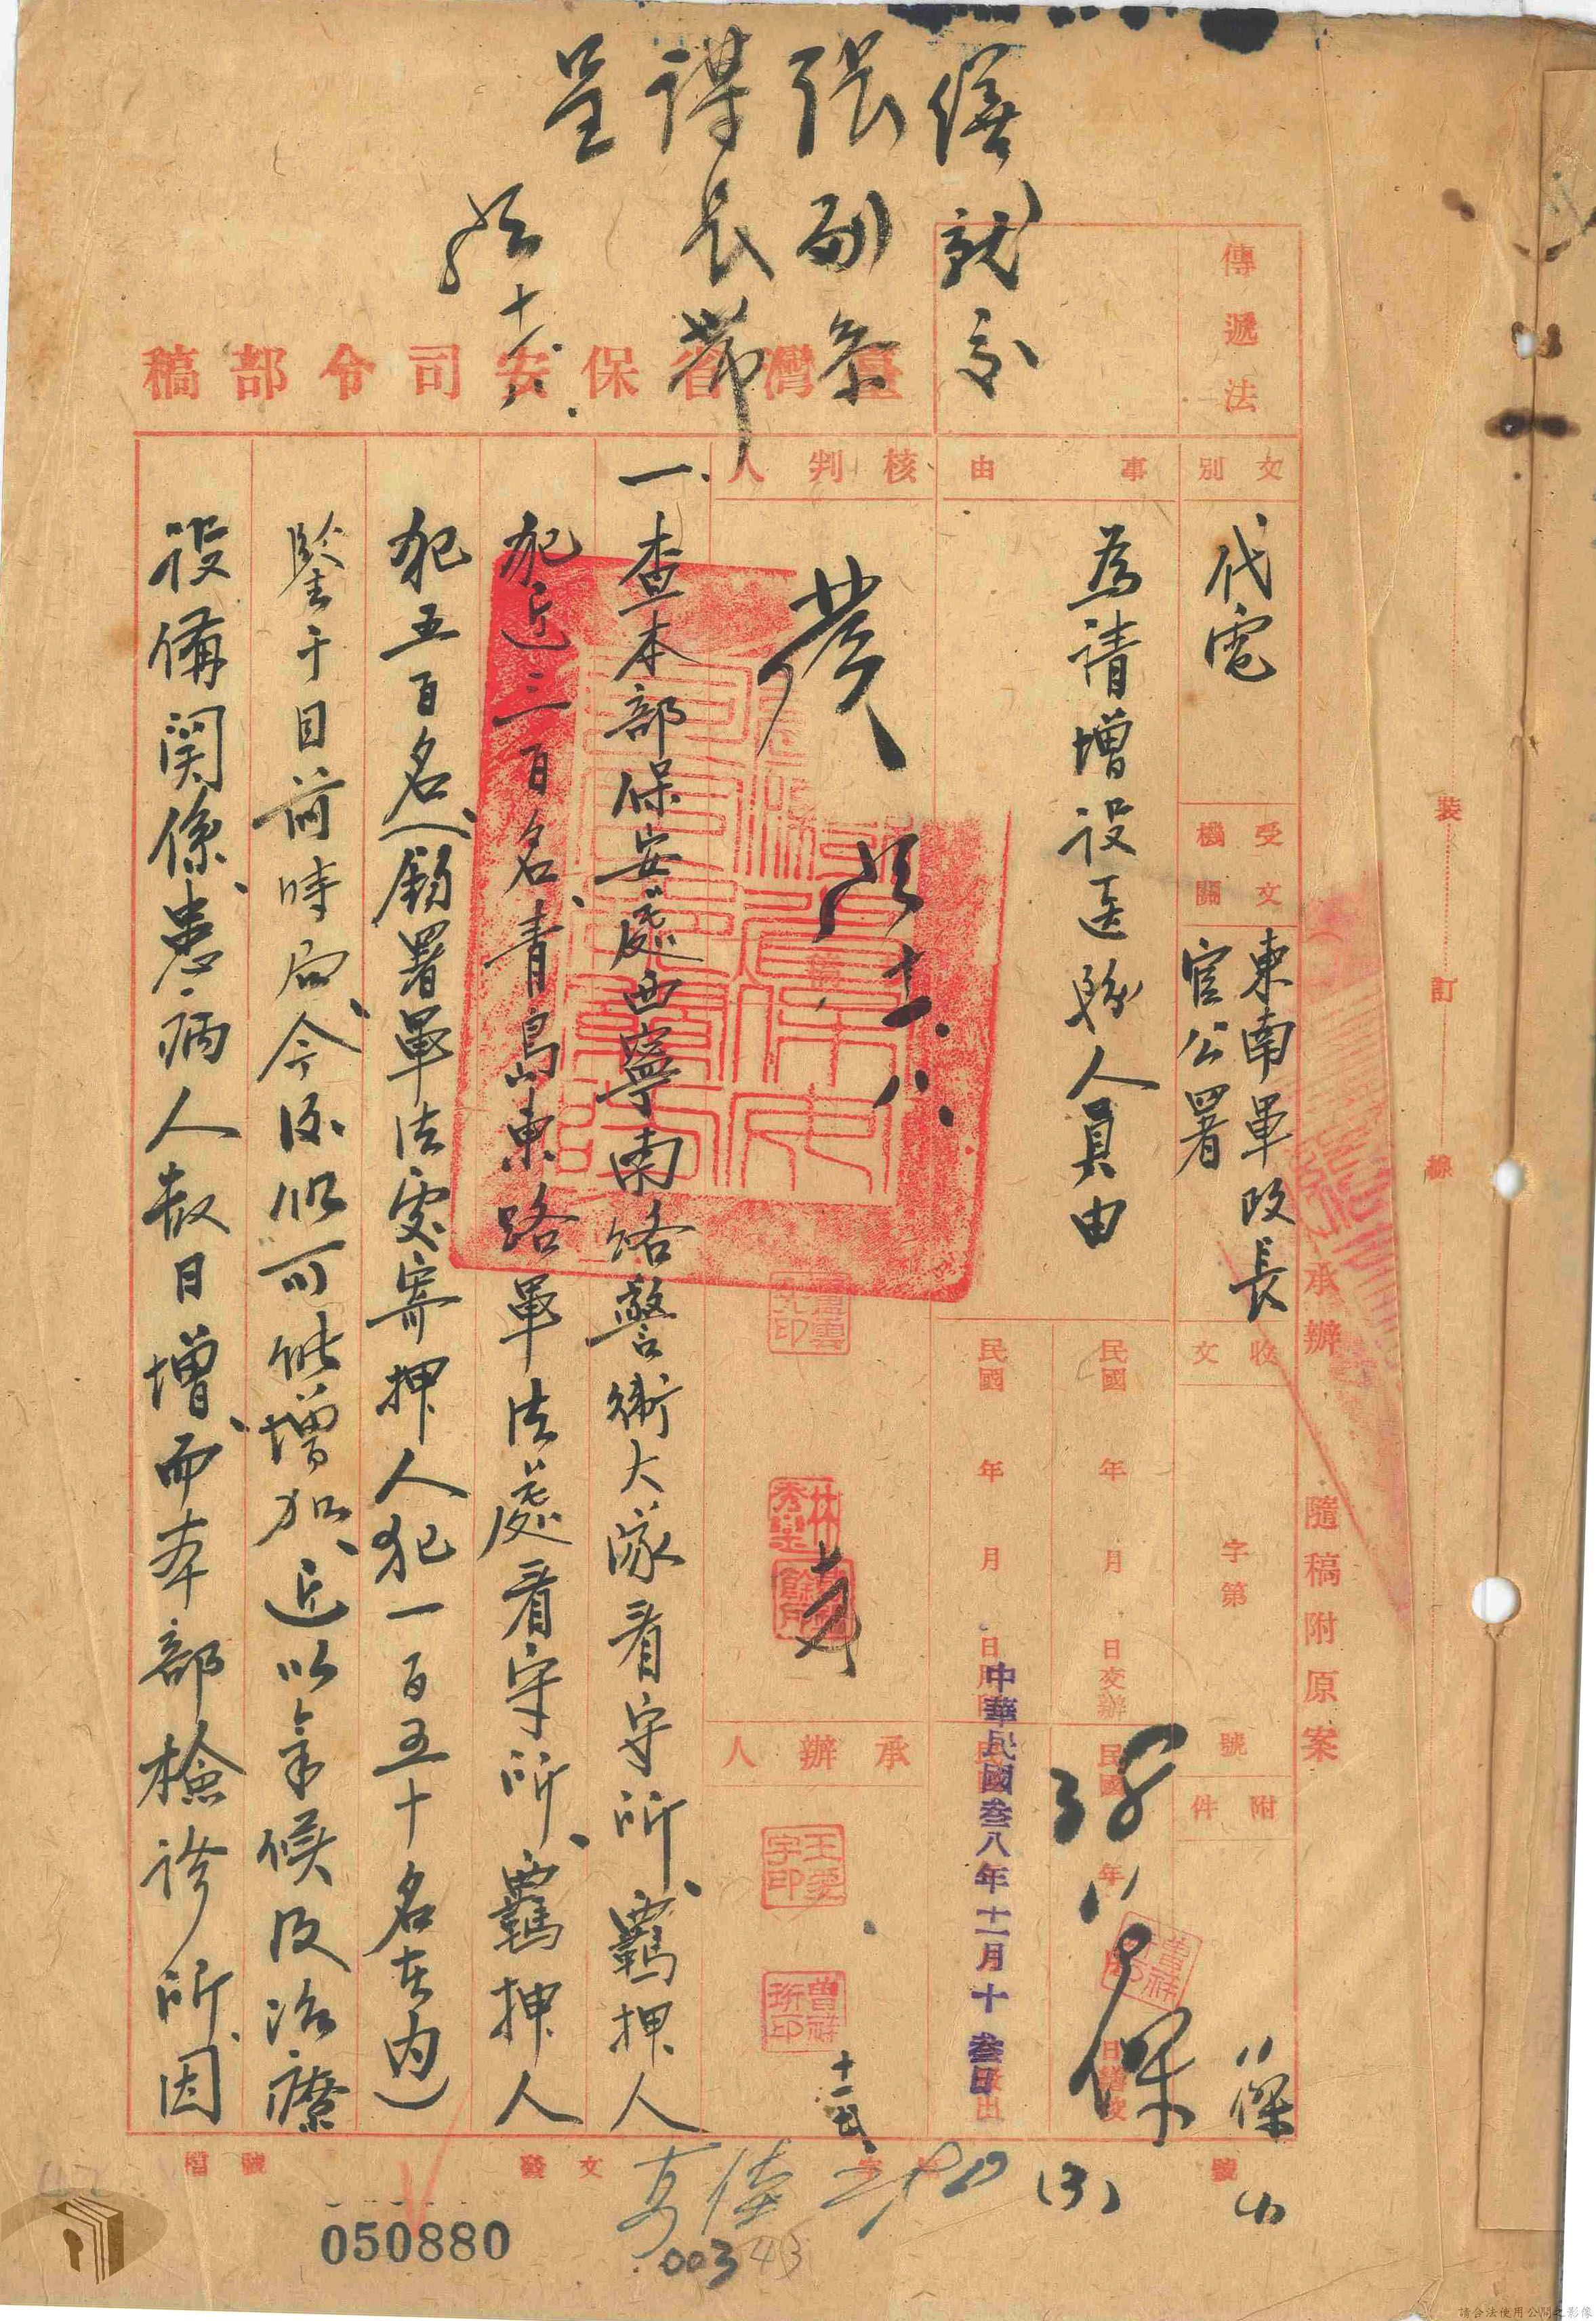 繕就交
張副參
謀長帶
呈
十一.八.
臺灣省保安司令部稿
傳遞法
文別
代電
受文機關
東南軍政長
官公署
收文
字第
號
附件
事由
為請增設医務人員由
民國 年 月 日交辦
民國 年 月 日
民國 年 月 日繕校
中華民國叁八年十一月十叁日
核判人
發
十一.八.
承辦人
一.查本部保安處西寧南路警衛大隊看守所、羈押人
犯近三百名、青島東路軍法處看守所、羈押人
犯五百名(鈞署軍法處寄押人犯一百五十名在內)
鑒于目前時局、今後似可能增加、近以氣候及治療
設備関係、患病人数日增、而本部檢診所、因
隨稿附原案
承辦
裝
訂
線
檔號
發文
號
050880
003
43
(3)
42
請合法使用公開之影像